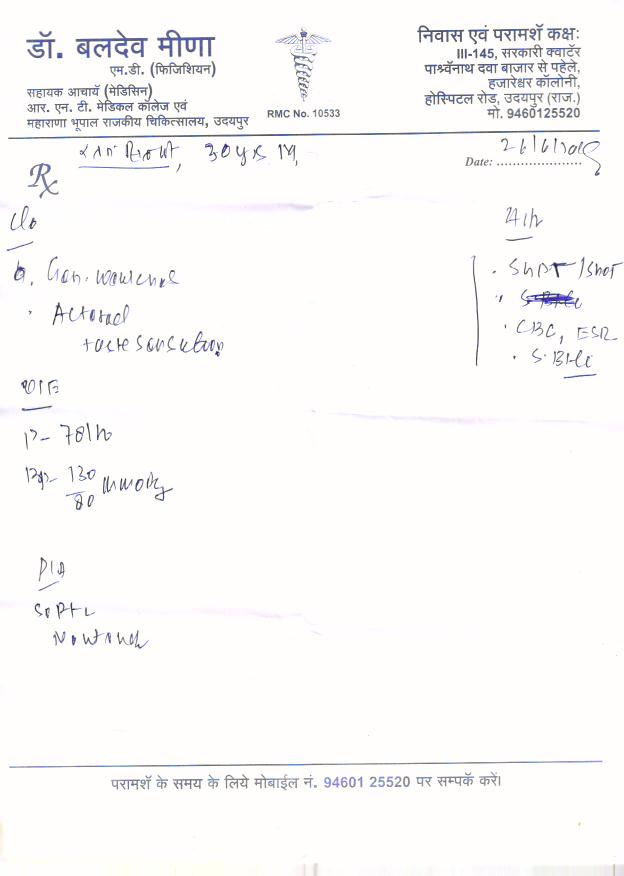 डॉ. बलदेव मीणा
एम.डी. (फिजिशियन)
सहायक आचार्य (मेडिसिन)
आर. एन. टी. मेडिकल कॉलेज एवं
महाराणा भूपाल राजकीय चिकित्सालय, उदयपुर
RMC No. 10533
निवास एवं परामर्श कक्षः
III-145, सरकारी क्वार्टर
पार्श्वनाथ दवा बाजार से पहेले,
हजारेश्वर कॉलोनी,
होस्पिटल रोड, उदयपुर (राज.)
मो. 9460125520
30 yrs
Date: 26/6/2018
Rx
C/o
Gen. weakness
Altered
taste sensation
O/E
P- 78/m
BP- 130/80 mmHg
P/A
Soft
Nontender
SGPT/SGOT
CBC, ESR
S. Bili
परामर्श के समय के लिये मोबाईल नं. 94601 25520 पर सम्पर्क करें।